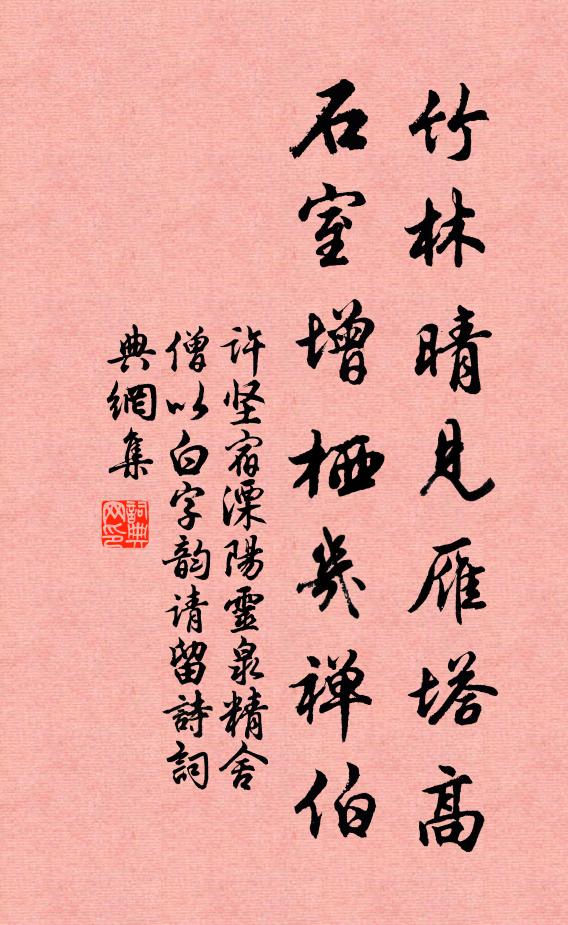 竹林晴見雁塔高
石室增栖幾禅伯
许坚宿溧陽靈泉精舍
僧以白字韵请留詩詞
典網集
詞典網印